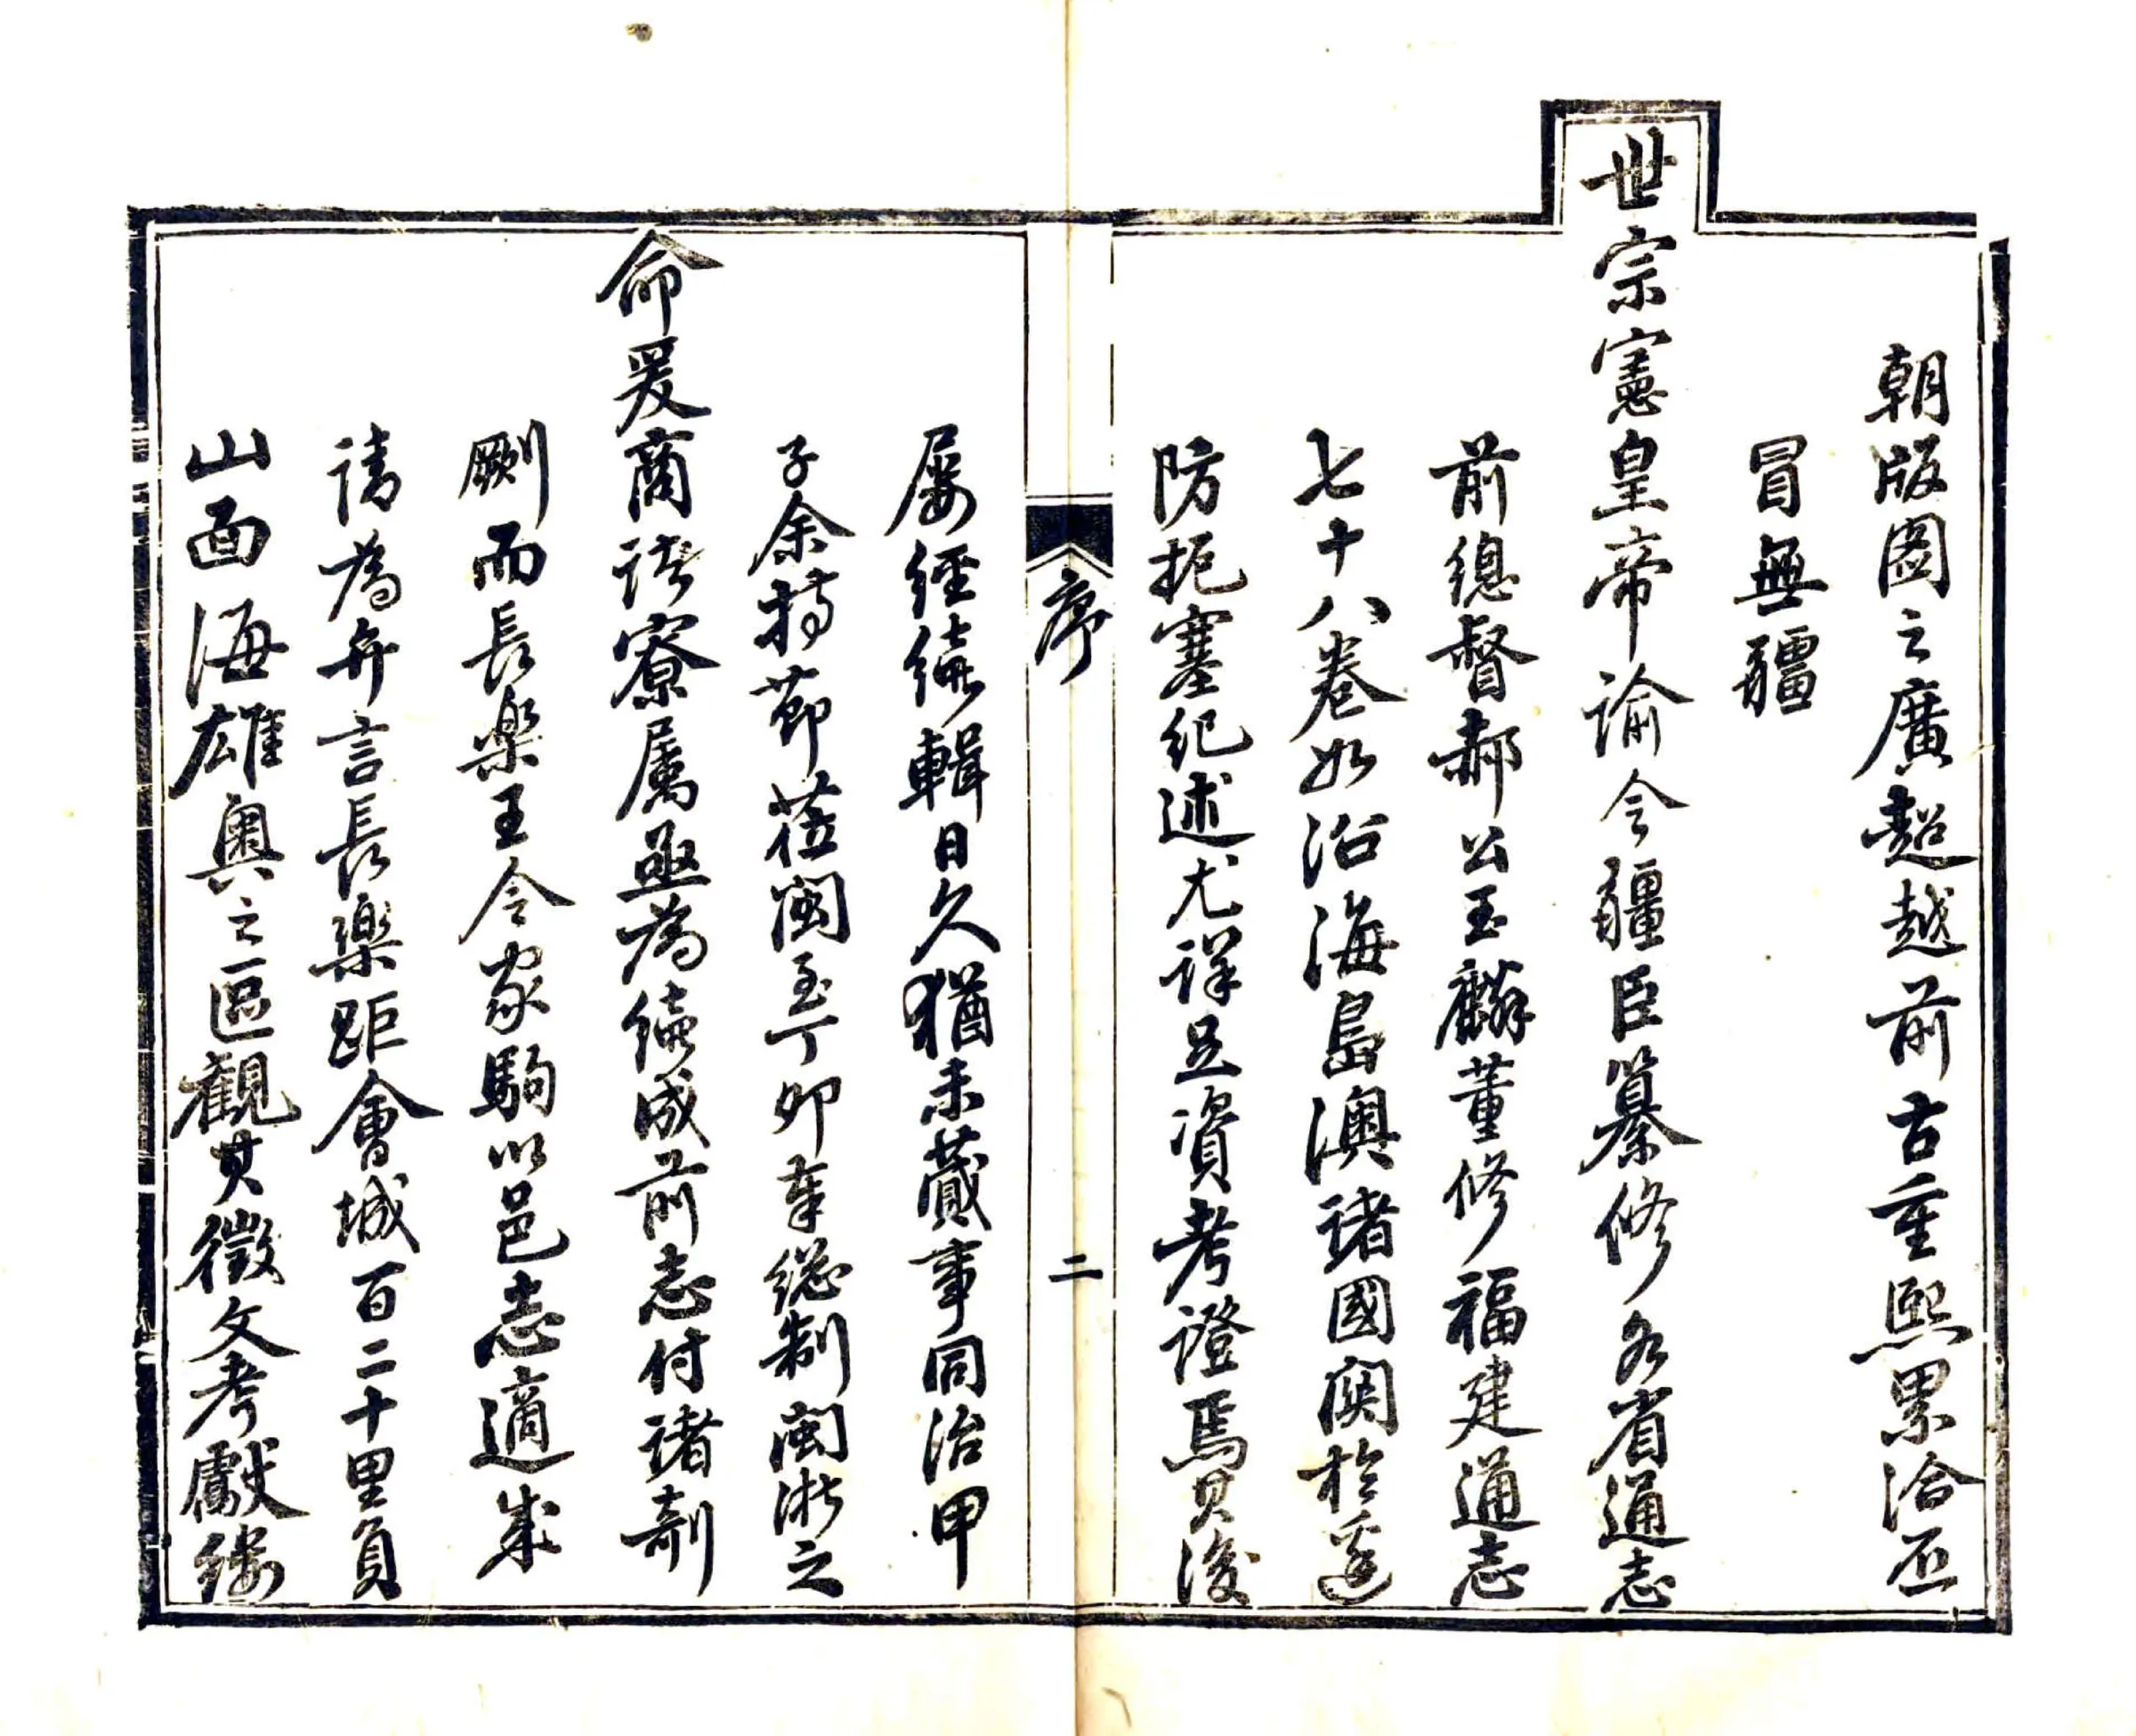 朝版圖之廣超越前古重熙累洽丕
冒無疆
世宗憲皇帝諭令疆臣纂修各省通志
前總督郝公玉麟董修福建通志
七十八卷如沿海島澳諸國関於邊
防扼塞紀述尤詳足資考證焉其後
序
二
屡經續輯日久猶未蕆事同治甲
子余持節蒞閩至丁卯奉總制閩浙之
命爰商諸寮属亟為續成前志付諸剞
劂而長樂王令家駒以邑志適成
請為弁言長樂距會城百二十里負
山面海雄奥之區觀其徵文考獻縷